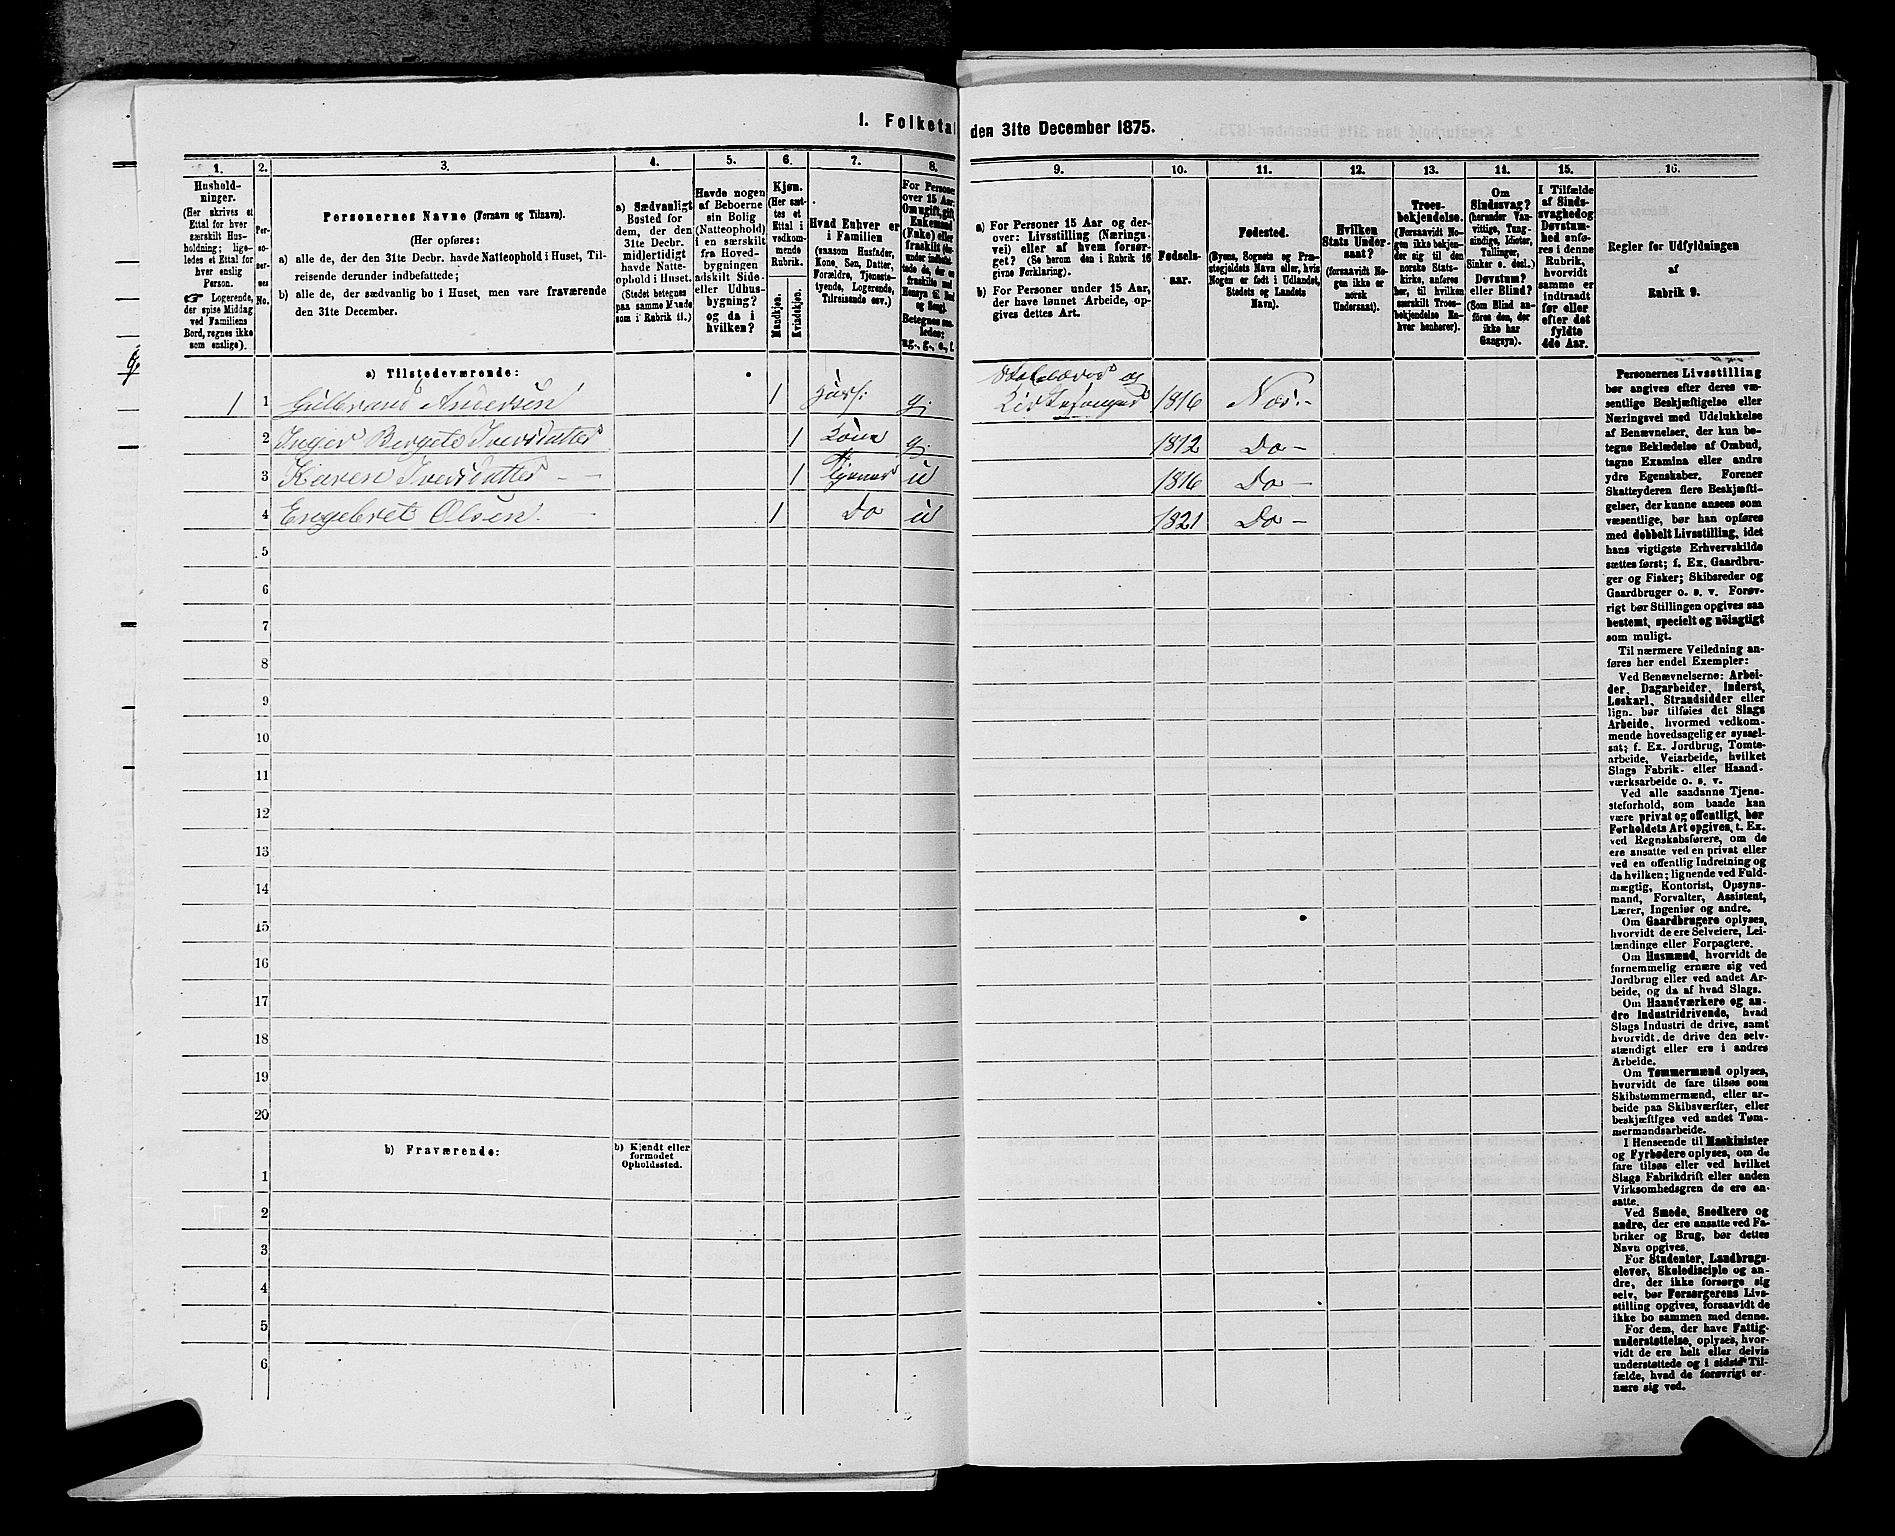 1. Folketal
den 31te December 1875.
1.
2.
3.
4.
5.
6.
7.
8.
9.
10.
11.
12.
13.
14.
15.
16.
Hushold-
ninger.
(Her skrives et
Ettal for hver
særskilt Hus-
holdning; lige-
ledes et Ettal for
hver enslig
Person.
☞ Logerende,
der spise Middag
ved Familiens
Bord, regnes ikke
som enslige).
Per-
so-
ner-
nes
No.
Personernes Navne (Fornavn og Tilnavn).
(Her opføres:
a) alle de, der den 31te Decbr. havde Natteophold i Huset, Til-
reisende derunder indbefattede;
b) alle de, der sædvanlig bo i Huset, men vare fraværende
den 31te December.
a) Sædvanligt
Bosted for
dem, der den
31te Decbr.
midlertidigt
havde Natte-
ophold i Huset.
(Stedet betegnes
paa samme Maade
som i Rubrik 11.)
Havde nogen
af Beboerne
sin Bolig
(Natteophold)
i en særskilt
fra Hoved-
bygningen
adskilt Side-
eller Udhus-
bygning?
og da i
hvilken?
Kjøn.
(Her sæt-
tes et
Ettal i
vedkom-
mende
Rubrik.
Mandkjøn.
Kvindekjøn.
Hvad Enhver er
i Familien
(saasom Husfader,
Kone, Søn, Datter,
Forældre, Tjeneste-
tyende, Logerende,
Tilreisende osv.)
For Personer
over 15 Aar:
Om ugift, gift,
Enkemand
(Enke) eller
fraskilt
Betegnes saa-
ledes:
ug., g., e., f.
a) For Personer 15 Aar og der-
over: Livsstilling (Nærings-
vei) eller af hvem forsør-
get? (Se herom den i Rubrik 16
givne Forklaring).
b) For Personer under 15 Aar,
der have lønnet Arbeide, op-
gives dettes Art.
Fødsels-
aar.
Fødested.
(Byens, Sognets og Præ-
stegjeldets Navn eller, hvis
Nogen er født i Udlandet,
Stedets og Landets
Navn).
Hvilken
Stats Under-
saat?
(forsaavidt No-
gen ikke er
norsk
Undersaat).
Troes-
bekjendelse.
(Forsaavidt No-
gen ikke bekjen-
der sig til den
norske Stats-
kirke, anføres
her, til hvilken
særskilt Troes-
bekjendelse En-
hver henhører).
Om
Sindssvag?
(herunder Van-
vittige, Tung-
sindige, Idioter,
Tullinger,
Sinker o. desl.)
Døvstum?
eller Blind?
(Som Blind an-
føres den, der
ikke har
Gangsyn).
I Tilfælde
af Sinds-
svaghed og
Døvstum-
hed anfø-
res i denne
Rubrik,
hvorvidt
samme er
indtraadt
før eller
efter det
fyldte
4de Aar.
Regler for Udfyldningen
af
Rubrik 9.
a) Tilstedeværende:
1 1 Gulbrand Andersen 1 Husf: g. Skolelærer og Kirkesanger 1816 Næs.-
2 Inger Birgete Iversdatter 1 Kone g. 1812 Do -
3 Karen Iversdatter - - 1 Tjener u 1816 Do -
4 Engebret Olsen. - 1 Do u 1821 Do -
5
6
7
8
9
10
11
12
13
14
15
16
17
18
19
20
b) Fraværende:
b) Kjendt eller
formodet
Opholdssted.
1
2
3
4
5
6
Personernes Livsstilling
bør angives efter deres væ-
sentlige Beskjæftigelse eller
Næringsvei med Udelukkelse
af Benævnelser, der kun be-
tegne Beklædelse af Ombud,
tagne Examina eller andre
ydre Egenskaber. Forener
Skatteyderen flere Beskjæfti-
gelser, der kunne ansees som
væsentlige, bør han opføres
med dobbelt Livsstilling, idet
hans vigtigste Erhvervskilde
sættes først; f. Ex. Gaardbru-
ger og Fisker; Skibsreder og
Gaardbruger o. s. v. Forøv-
rigt bør Stillingen opgives saa
bestemt, specielt og nöiagtigt
som muligt.
Til nærmere Veiledning an-
føres her endel Exempler:
Ved Benævnelserne: Arbei-
der, Dagarbeider, Inderst,
Løskarl, Strandsidder eller
lign. bør tilføies det Slags
Arbeide, hvormed vedkom-
mende hovedsagelig er syssel-
sat; f. Ex. Jordbrug, Tomte-
arbeide, Veiarbeide, hvilket
Slags Fabrik- eller Haand-
værksarbeide o. s. v.
Ved alle saadanne Tjene-
steforhold, som baade kan
være privat og offentligt, bør
Forholdets Art opgives, t. Ex.
ved Regnskabsførere, om de
ere ansatte ved en privat eller
ved en offentlig Indretning og
da hvilken; lignende ved Fuld-
mægtig, Kontorist, Opsyns-
mand, Forvalter, Assistent,
Lærer, Ingeniør og andre.
Om Gaardbrugere oplyses,
hvorvidt de ere Selveiere, Lei-
lændinge eller Forpagtere.
Om Husmænd, hvorvidt de
fornemmelig ernære sig ved
Jordbrug eller ved andet Ar-
beide, og da af hvad Slags.
Om Haandværkere og an-
dre Industridrivende, hvad
Slags Industri de drive, samt
hvorvidt de drive den selv-
stændigt eller ere i andres
Arbeide.
Om Tømmermænd oplyses,
hvorvidt de fare tilsøs som
Skibstømmermænd, eller ar-
beide paa Skibsværfter, eller
beskjæftiges ved andet Tøm-
mermandsarbeide.
I Henseende til Maskinister
og Fyrbødere oplyses, om de
fare tilsøs eller ved hvilket
Slags Fabrikdrift eller anden
Virksomhedsgren de ere an-
satte.
Ved Smede, Snedkere og
andre, der ere ansatte ved Fa-
briker og Brug, bør dettes
Navn opgives.
For Studenter, Landbrugs-
elever, Skoledisciple og an-
dre, der ikke forsørge sig
selv, bør Forsørgerens Livs-
stilling opgives, forsaavidt de
ikke bo sammen med denne.
For dem, der have Fattig-
understøttelse, oplyses, hvor-
vidt de ere helt eller delvis
understøttede og i sidste Til-
fælde, hvad de forøvrigt er-
nære sig ved.